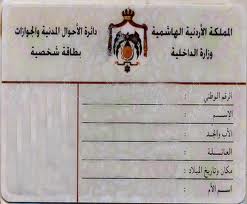 المملكة الأردنية الهاشمية
وزارة الداخلية
دائرة الأحوال المدنية والجوازات
بطاقة شخصية
الرقم الوطني :
الإسم :
الأب والجد :
العائلة :
مكان وتاريخ الميلاد :
اسم الأم :